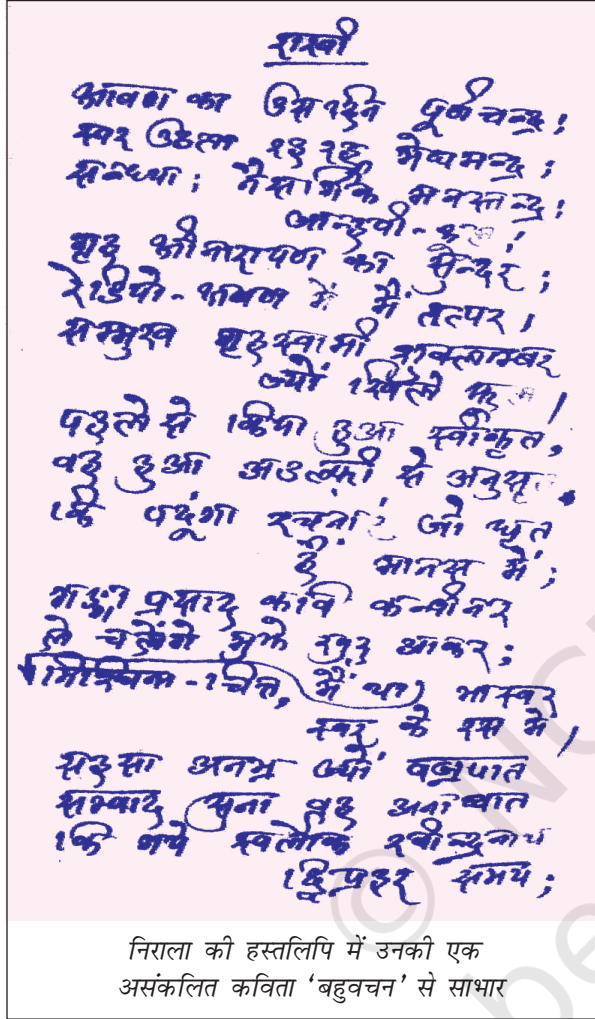 राखी
श्रावण का उस दिन पूर्ण चन्द्र;
स्वर उठता रह रह मेघमन्द्र;
सन्ध्या; नैसर्गिक मनस्तन्द्र;
जान्हवी-
गृह श्रीनारायण का सुन्दर;
रेडियो-भाषण में मैं तत्पर।
सम्मुख गृहस्वामी शुक्लाम्बर
ज्यों खिले
पहले से किया हुआ स्वीकृत,
वह हुआ से
कि पढूंगा रचनाएँ जो धृत
हैं मानस में;
गङ्गाप्रसाद कवि
ले चलेंगे मुझे खुद आकर;
निश्चिन्त-चित्त, मैं था भास्वर
स्वर के रस में।
सहसा अनभ्र ज्यों वज्रपात
सम्वाद सुना वह
कि गये स्वर्लोक रवीन्द्रनाथ
द्विप्रहर समय;
निराला की हस्तलिपि में उनकी एक
असंकलित कविता ‘बहुवचन’ से साभार
© NC
be